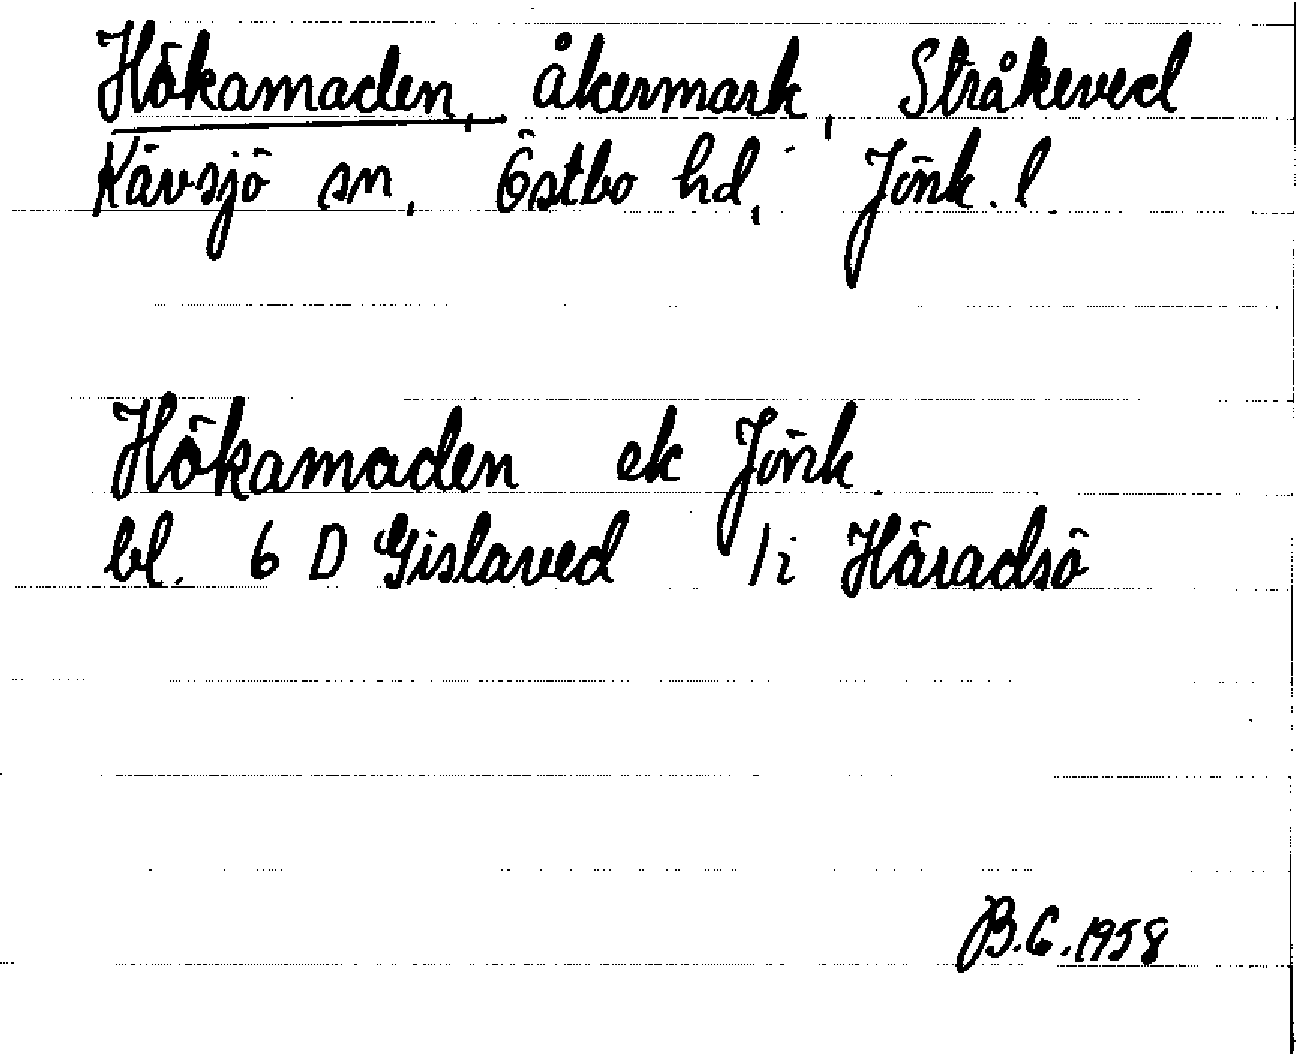 Hökamaden, åkermark, Stråkeved
Kävsjö sn, Östbo hd, Jönk. l.
Hökamaden ek Jönk.
bl. 6 D Gislaved /i Häradsö
B.G.1958